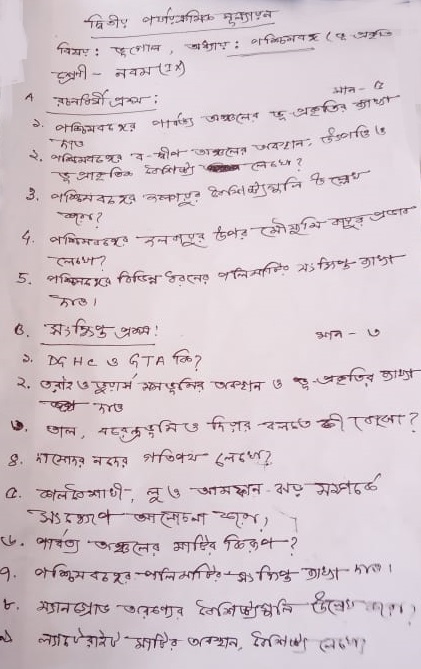 দ্বিতীয় পার্যায়ক্রমিক মূল্যায়ন
বিষয় : ভূগোল, অধ্যায় : পশ্চিমবঙ্গ (ভূ-প্রকৃতি
শ্রেণী - নবম (IX)
A রচনাধর্মী প্রশ্ন : মান - ৫
১. পশ্চিমবঙ্গের পার্বত্য অঞ্চলের ভূ-প্রকৃতির ব্যাখ্যা
দাও
২. পশ্চিমবঙ্গের ব-দ্বীপ অঞ্চলের অবস্থান, উৎপত্তি ও
ভূ-প্রাকৃতিক বৈশিষ্ট্য লেখো?
3. পশ্চিমবঙ্গের জলবায়ুর বৈশিষ্ট্যগুলি উল্লেখ
করো?
4. পশ্চিমবঙ্গের জলবায়ুর উপর মৌসুমি বায়ুর প্রভাব
লেখো?
5. পশ্চিমবঙ্গের বিভিন্ন ধরনের পলিমাটির সংক্ষিপ্ত ব্যাখ্যা
দাও।
B. সংক্ষিপ্ত প্রশ্ন : মান - ৩
১. DGHC ও GTA কি?
২. তরাই ও ডুয়ার্স অঞ্চলের অবস্থান ও ভূ-প্রকৃতির ব্যাখ্যা
দাও
৩. তাল, বরেন্দ্রভূমি ও দিয়ারা বলতে কী বোঝো?
৪. দামোদর নদের গতিপথ লেখো?
৫. কালবৈশাখী, লু ও আমফান ঝড় সম্পর্কে
সংক্ষেপে আলোচনা করো,
৬. পার্বত্য অঞ্চলের মাটির কিরূপ?
৭. পশ্চিমবঙ্গের পলিমাটির সংক্ষিপ্ত ব্যাখ্যা দাও।
৮. ম্যানগ্রোভ অরণ্যের বৈশিষ্ট্যগুলি উল্লেখ করো?
৯ ল্যাটেরাইট মাটির অবস্থান, বৈশিষ্ট্য লেখো?